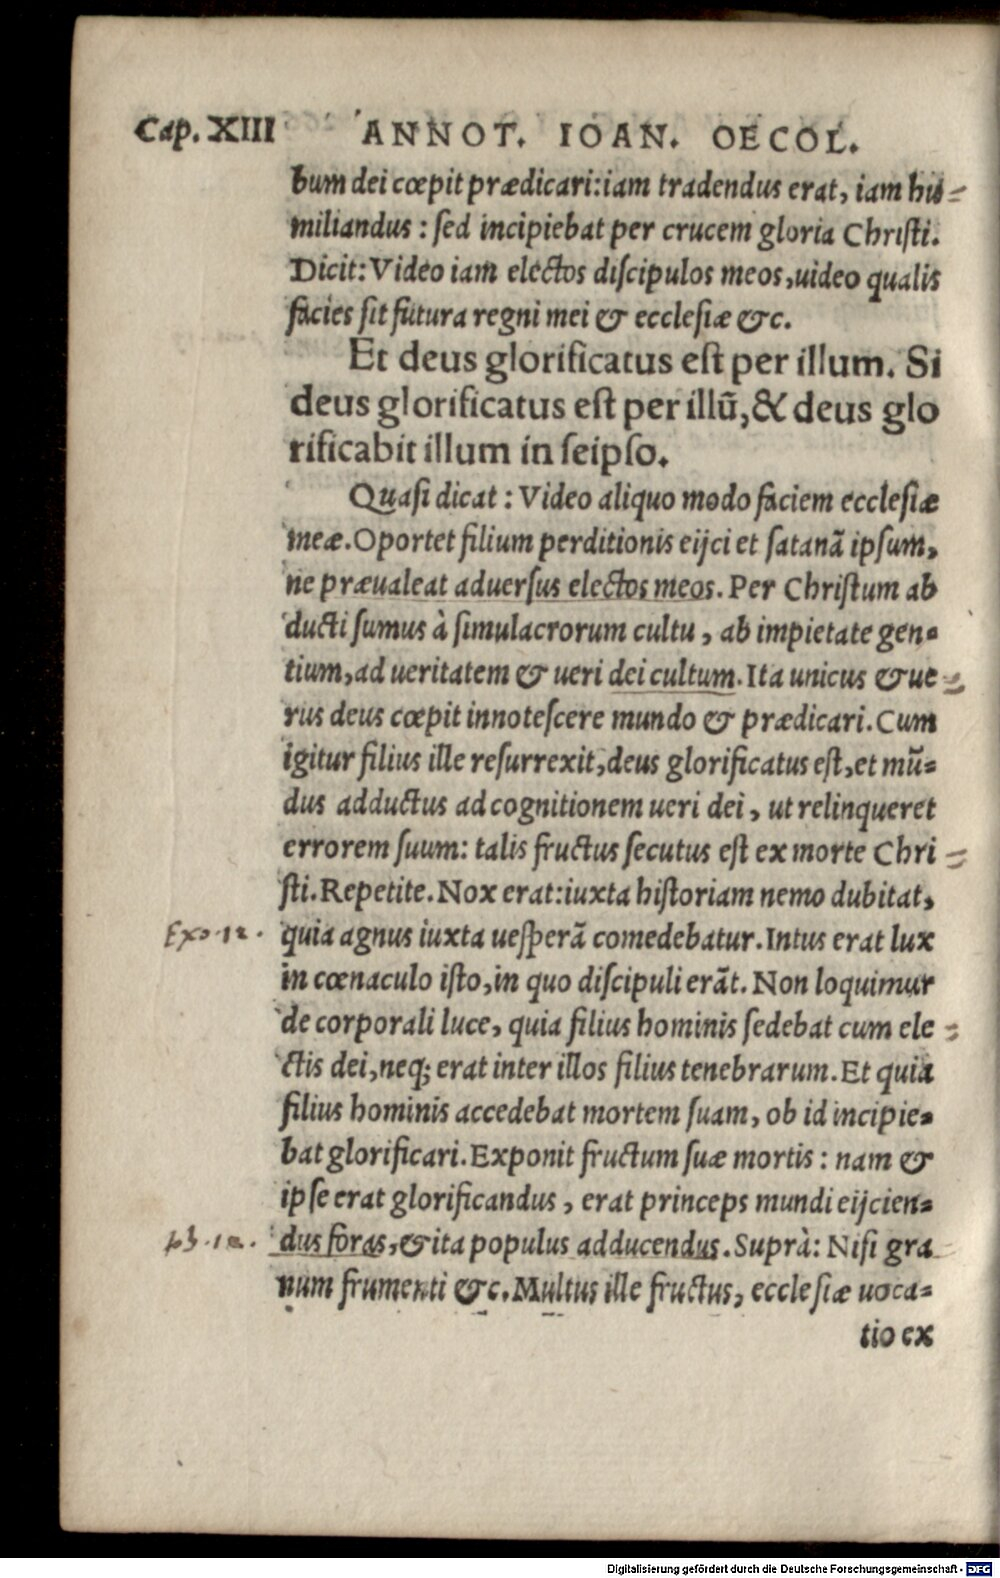 Cap. XIII ANNOT. IOAN. OECOL.
bum dei cœpit prædicari: iam tradendus erat, iam hu-
miliandus: sed incipiebat per crucem gloria Christi.
Dicit: Video iam electos discipulos meos, uideo qualis
facies sit futura regni mei & ecclesiæ &c.
Et deus glorificatus est per illum. Si
deus glorificatus est per illũ, & deus glo
rificabit illum in seipso.
Quasi dicat: Video aliquo modo faciem ecclesiæ
meæ. Oportet filium perditionis eijci et satanã ipsum,
ne præualeat aduersus electos meos. Per Christum ab
ducti sumus à simulacrorum cultu, ab impietate gen-
tium, ad ueritatem & ueri dei cultum. Ita unicus & ue-
rus deus cœpit innotescere mundo & prædicari. Cum
igitur filius ille resurrexit, deus glorificatus est, et mũ-
dus adductus ad cognitionem ueri dei, ut relinqueret
errorem suum: talis fructus secutus est ex morte Chri-
sti. Repetite. Nox erat: iuxta historiam nemo dubitat,
Exo. 12. quia agnus iuxta uesperã comedebatur. Intus erat lux
in cœnaculo isto, in quo discipuli erãt. Non loquimur
de corporali luce, quia filius hominis sedebat cum ele-
ctis dei, neq; erat inter illos filius tenebrarum. Et quia
filius hominis accedebat mortem suam, ob id incipie-
bat glorificari. Exponit fructum suæ mortis: nam &
ipse erat glorificandus, erat princeps mundi eijcien-
dus foras, & ita populus adducendus. Suprà: Nisi gra-
num frumenti &c. Multus ille fructus, ecclesiæ uoca-
tio ex
Digitalisierung gefördert durch die Deutsche Forschungsgemeinschaft - DFG